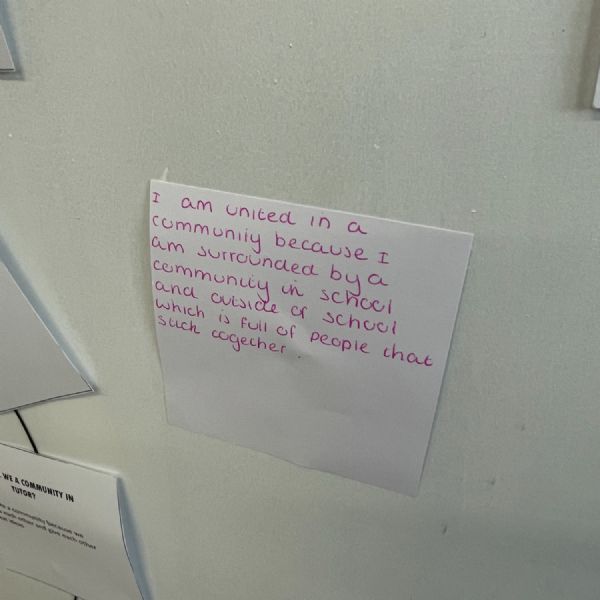 I am united in a
community because I
am surrounded by a
community in school
and outside of school
which is full of people that
stick together.
WE A COMMUNITY IN
TUTOR?
a community because we
each other and give each other